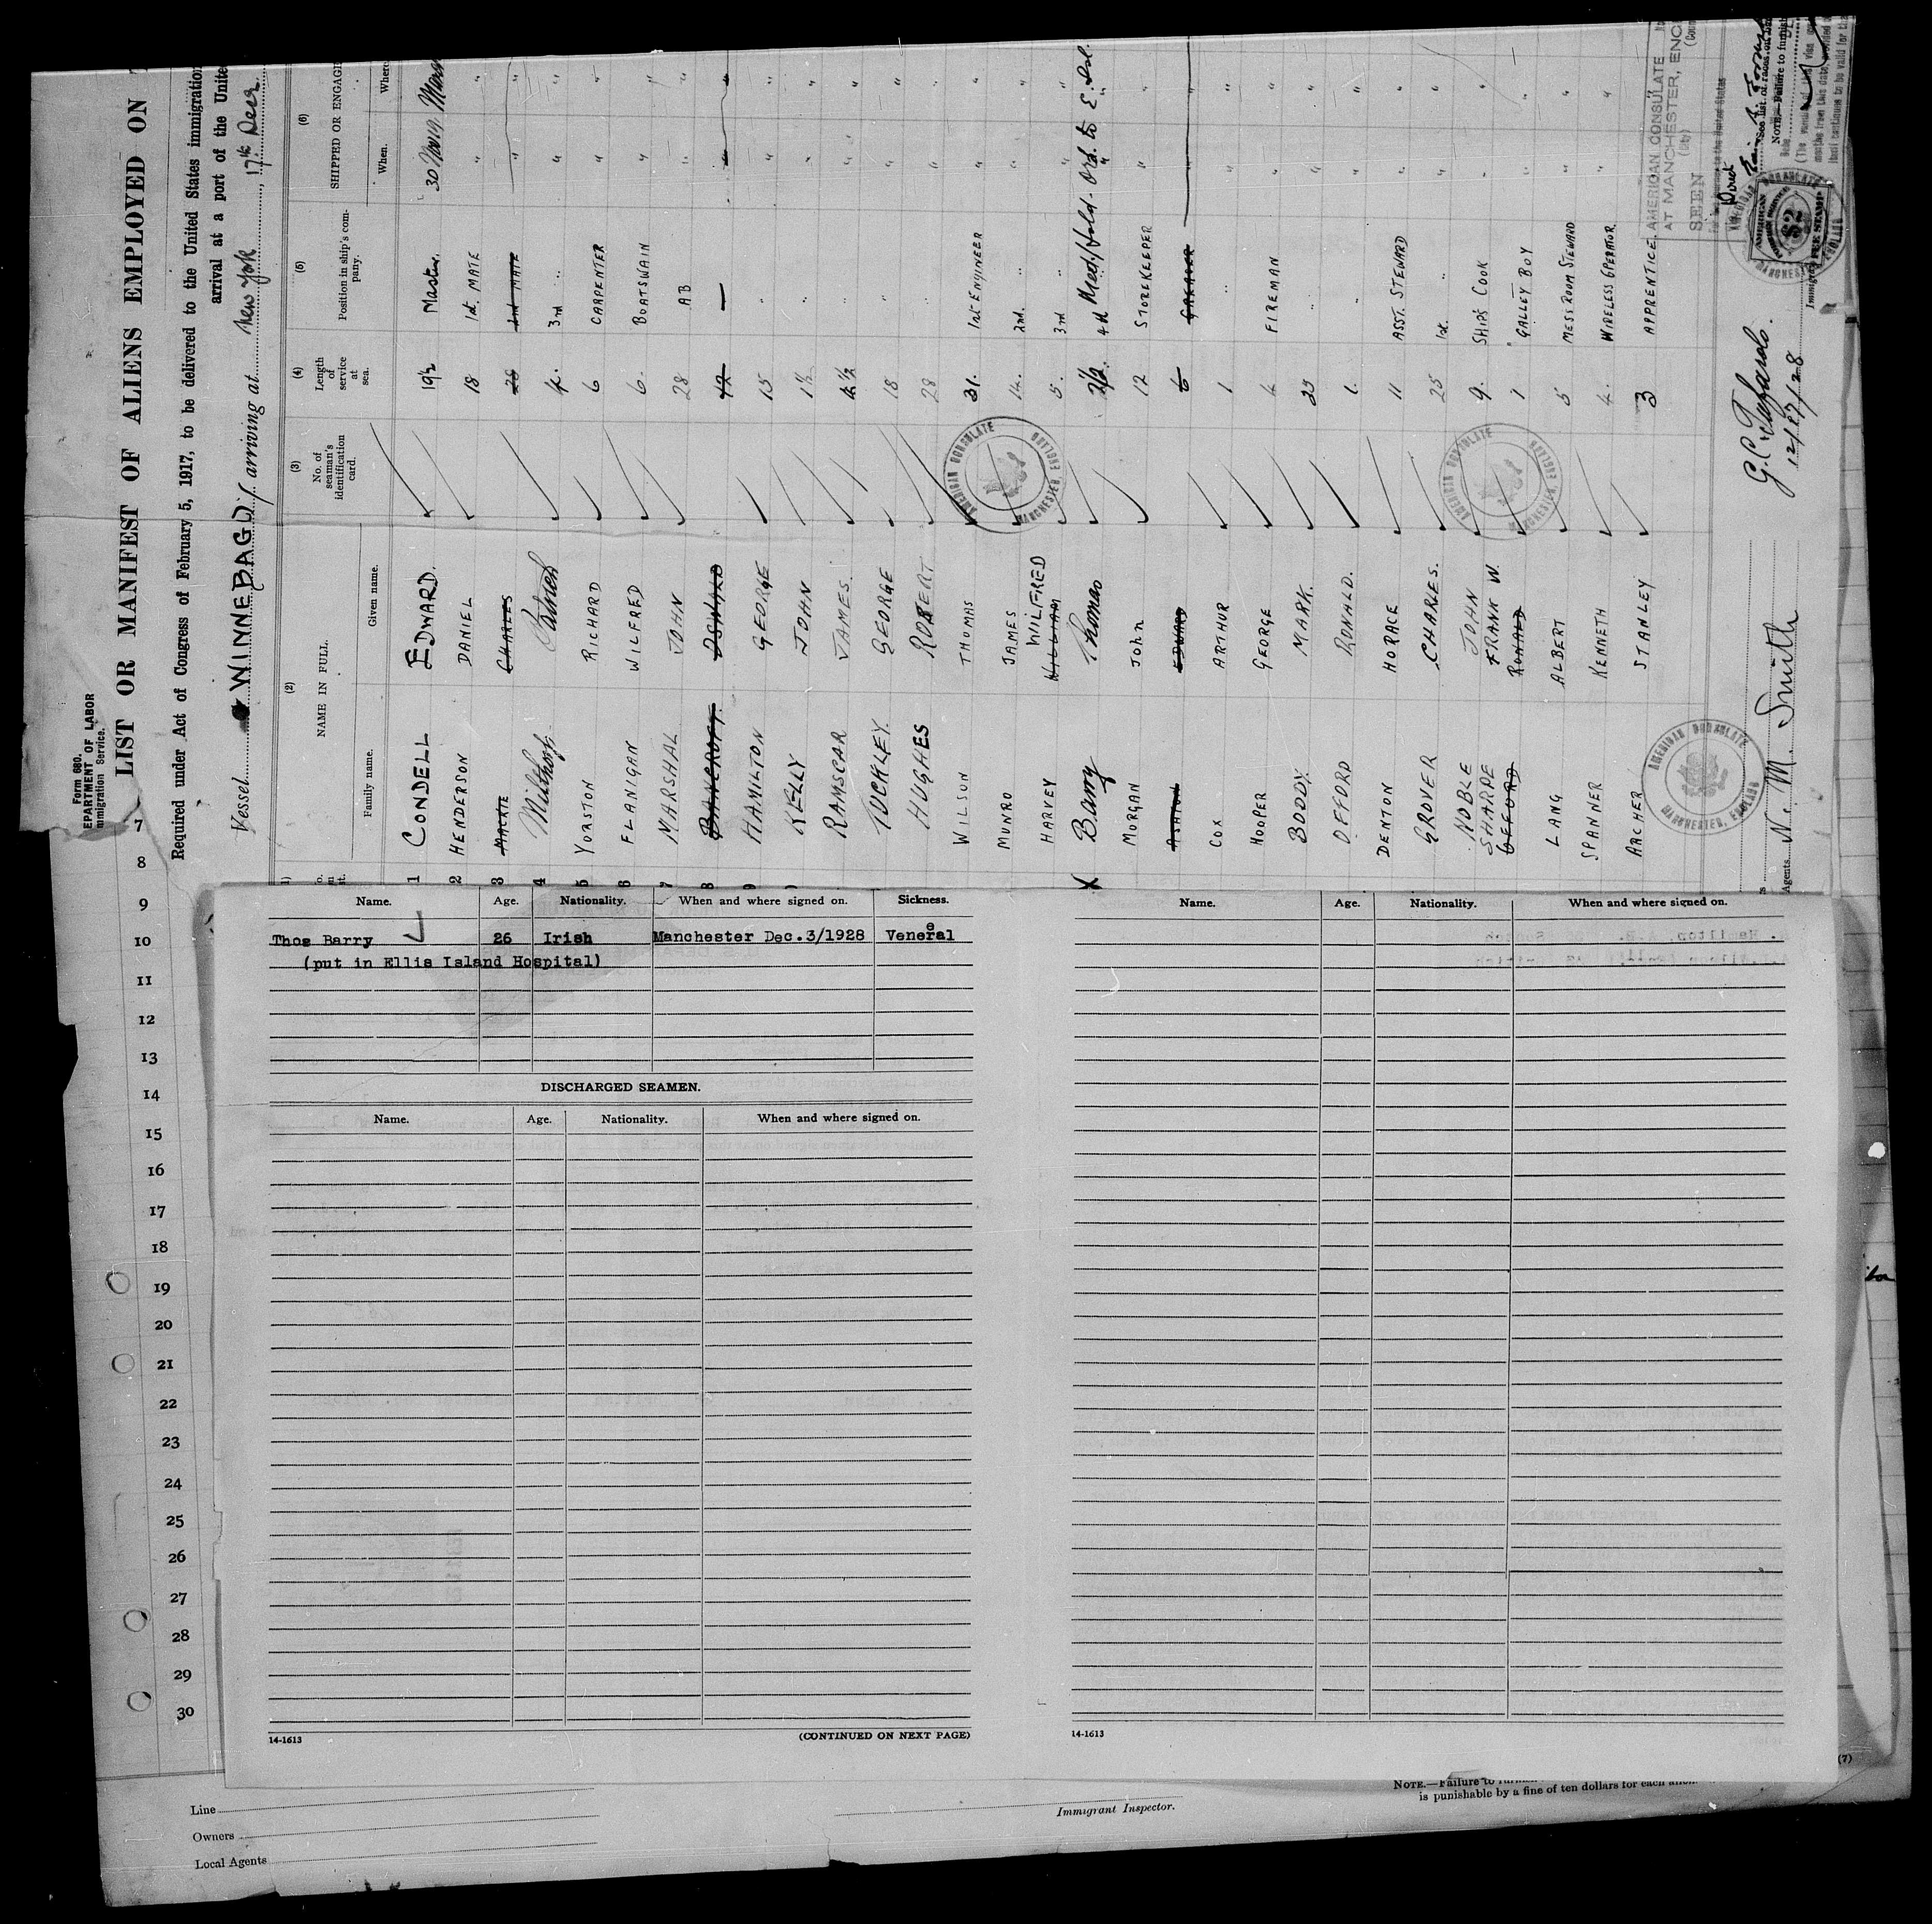 Form 680.
EPARTMENT OF LABOR
mmigration Service.
LIST OR MANIFEST OF ALIENS EMPLOYED ON
Required under Act of Congress of February 5, 1917, to be delivered to the United States immigration
arrival at a port of the United
Vessel WINNEBAGO, arriving at New York, 17th Decr
(2) (3) (4) (5) (6)
NAME IN FULL. No. of seaman's identification card. Length of service at sea. Position in ship's company. SHIPPED OR ENGAGE
Family name. Given name. When. Where
1 CONDELL EDWARD. 19½ Master. 30 Novr
2 HENDERSON DANIEL 18 1st. MATE " "
3 MACKIE CHARLES 28 2nd MATE " "
4 Patrick 4. 3rd " " "
5 YORSTON RICHARD 6 CARPENTER " "
6 FLANIGAN WILFRED 6. BOATSWAIN " "
7 MARSHAL JOHN 28 AB " "
8 BANCROFT.
9 HAMILTON GEORGE 15 " " "
KELLY JOHN 1½ " " "
RAMSCAR JAMES. 4½ " " "
TUCKLEY. GEORGE 18 " " "
HUGHES ROBERT 28 " " "
WILSON THOMAS 31. 1st ENGINEER " "
MUNRO JAMES 14. 2nd. " " "
HARVEY WILFRED WILLIAM 5. 3rd " " "
X Barry Thomas 2½. 4th Med. Hold. Ord. to E. Isl.
MORGAN JOHN 12 STOREKEEPER " "
ASHTON EDWARD 6 GREASER
COX ARTHUR 1 " " "
HOOPER GEORGE 4 FIREMAN " "
BODDY. MARK. 23 " " "
OFFORD RONALD. 1. " " "
DENTON HORACE 11 ASST. STEWARD " "
GROVER CHARLES. 25 1st. " " "
NOBLE JOHN 9. SHIP'S COOK " "
SHARPE FRANK W. GEFFORD RONALD 1 GALLEY BOY " "
LANG ALBERT 5 MESSROOM STEWARD " "
SPANNER KENNETH 4. WIRELESS OPERATOR. " "
ARCHER STANLEY 3 APPRENTICE.
AMERICAN CONSULATE
AT MANCHESTER, ENG
(City)
SEEN
AMERICAN CONSULATE
MANCHESTER, ENGLAND
AMERICAN CONSULATE
MANCHESTER, ENGLAND
AMERICAN CONSULATE
MANCHESTER, ENGLAND
$2
FEE STAMP
12/17/28
Agents. N. M. Smith
7
8
9
10
11
12
13
14
15
16
17
18
19
20
21
22
23
24
25
26
27
28
29
30
Name. Age. Nationality. When and where signed on. Sickness.
Thos Barry 26 Irish Manchester Dec.3/1928 Veneral
e
(put in Ellis Island Hospital)
DISCHARGED SEAMEN.
Name. Age. Nationality. When and where signed on.
14-1613 (CONTINUED ON NEXT PAGE)
Name. Age. Nationality. When and where signed on.
14-1613
(7)
Line
Owners
Local Agents
Immigrant Inspector.
NOTE.—Failure to
is punishable by a fine of ten dollars for each